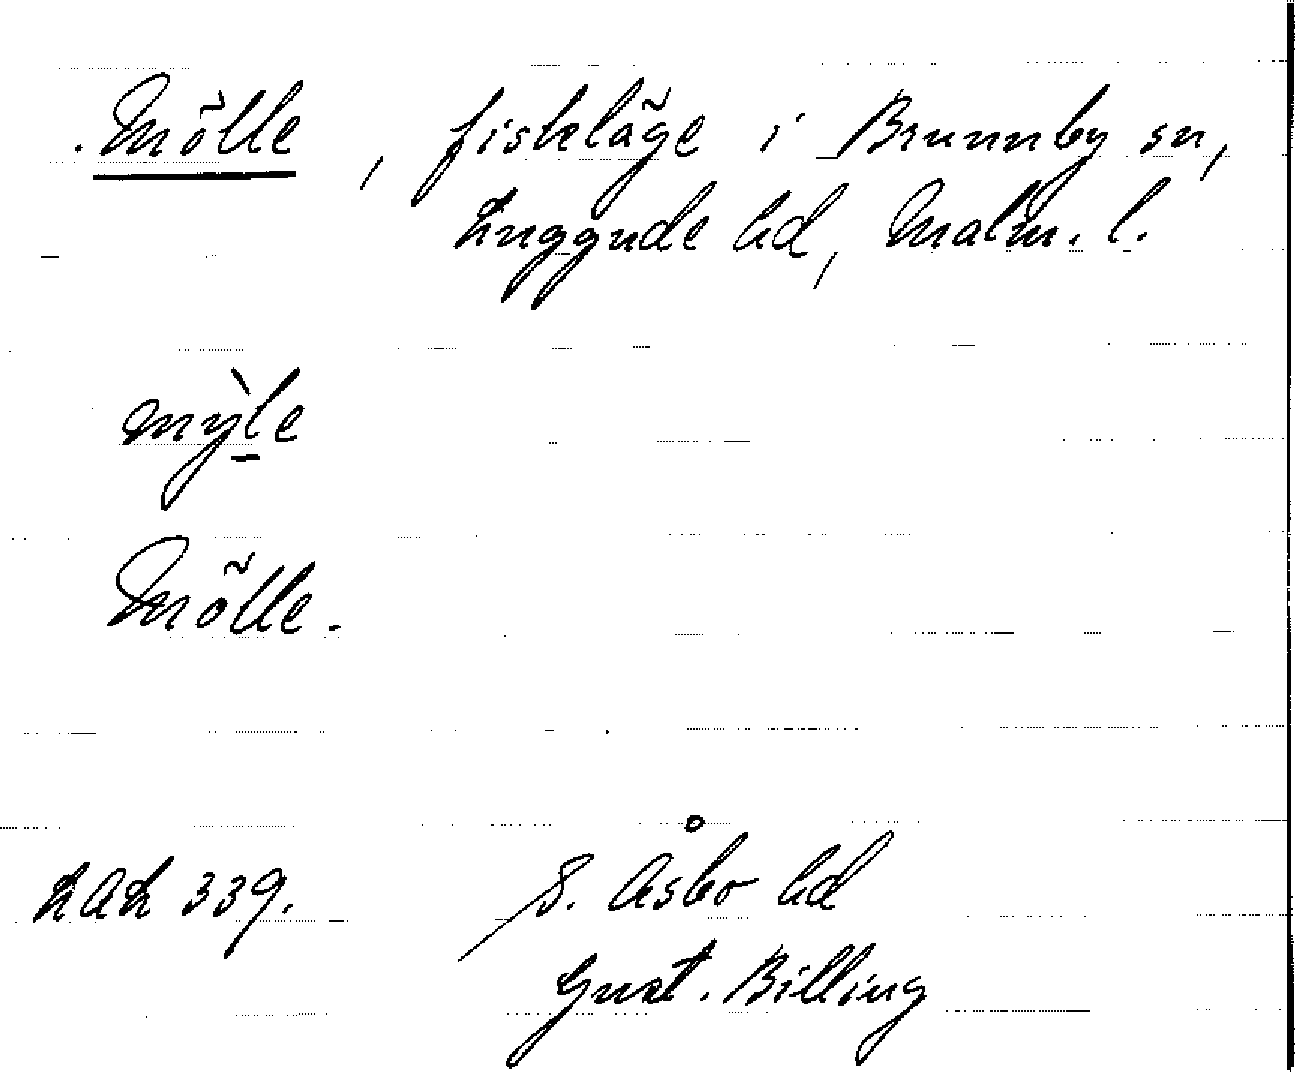 Mölle, fiskläge i Brunnby sn,
Luggude hd, Malm. l.
mỳle
Mölle.
LAL 339.
S. Åsbo hd
Gust. Billing